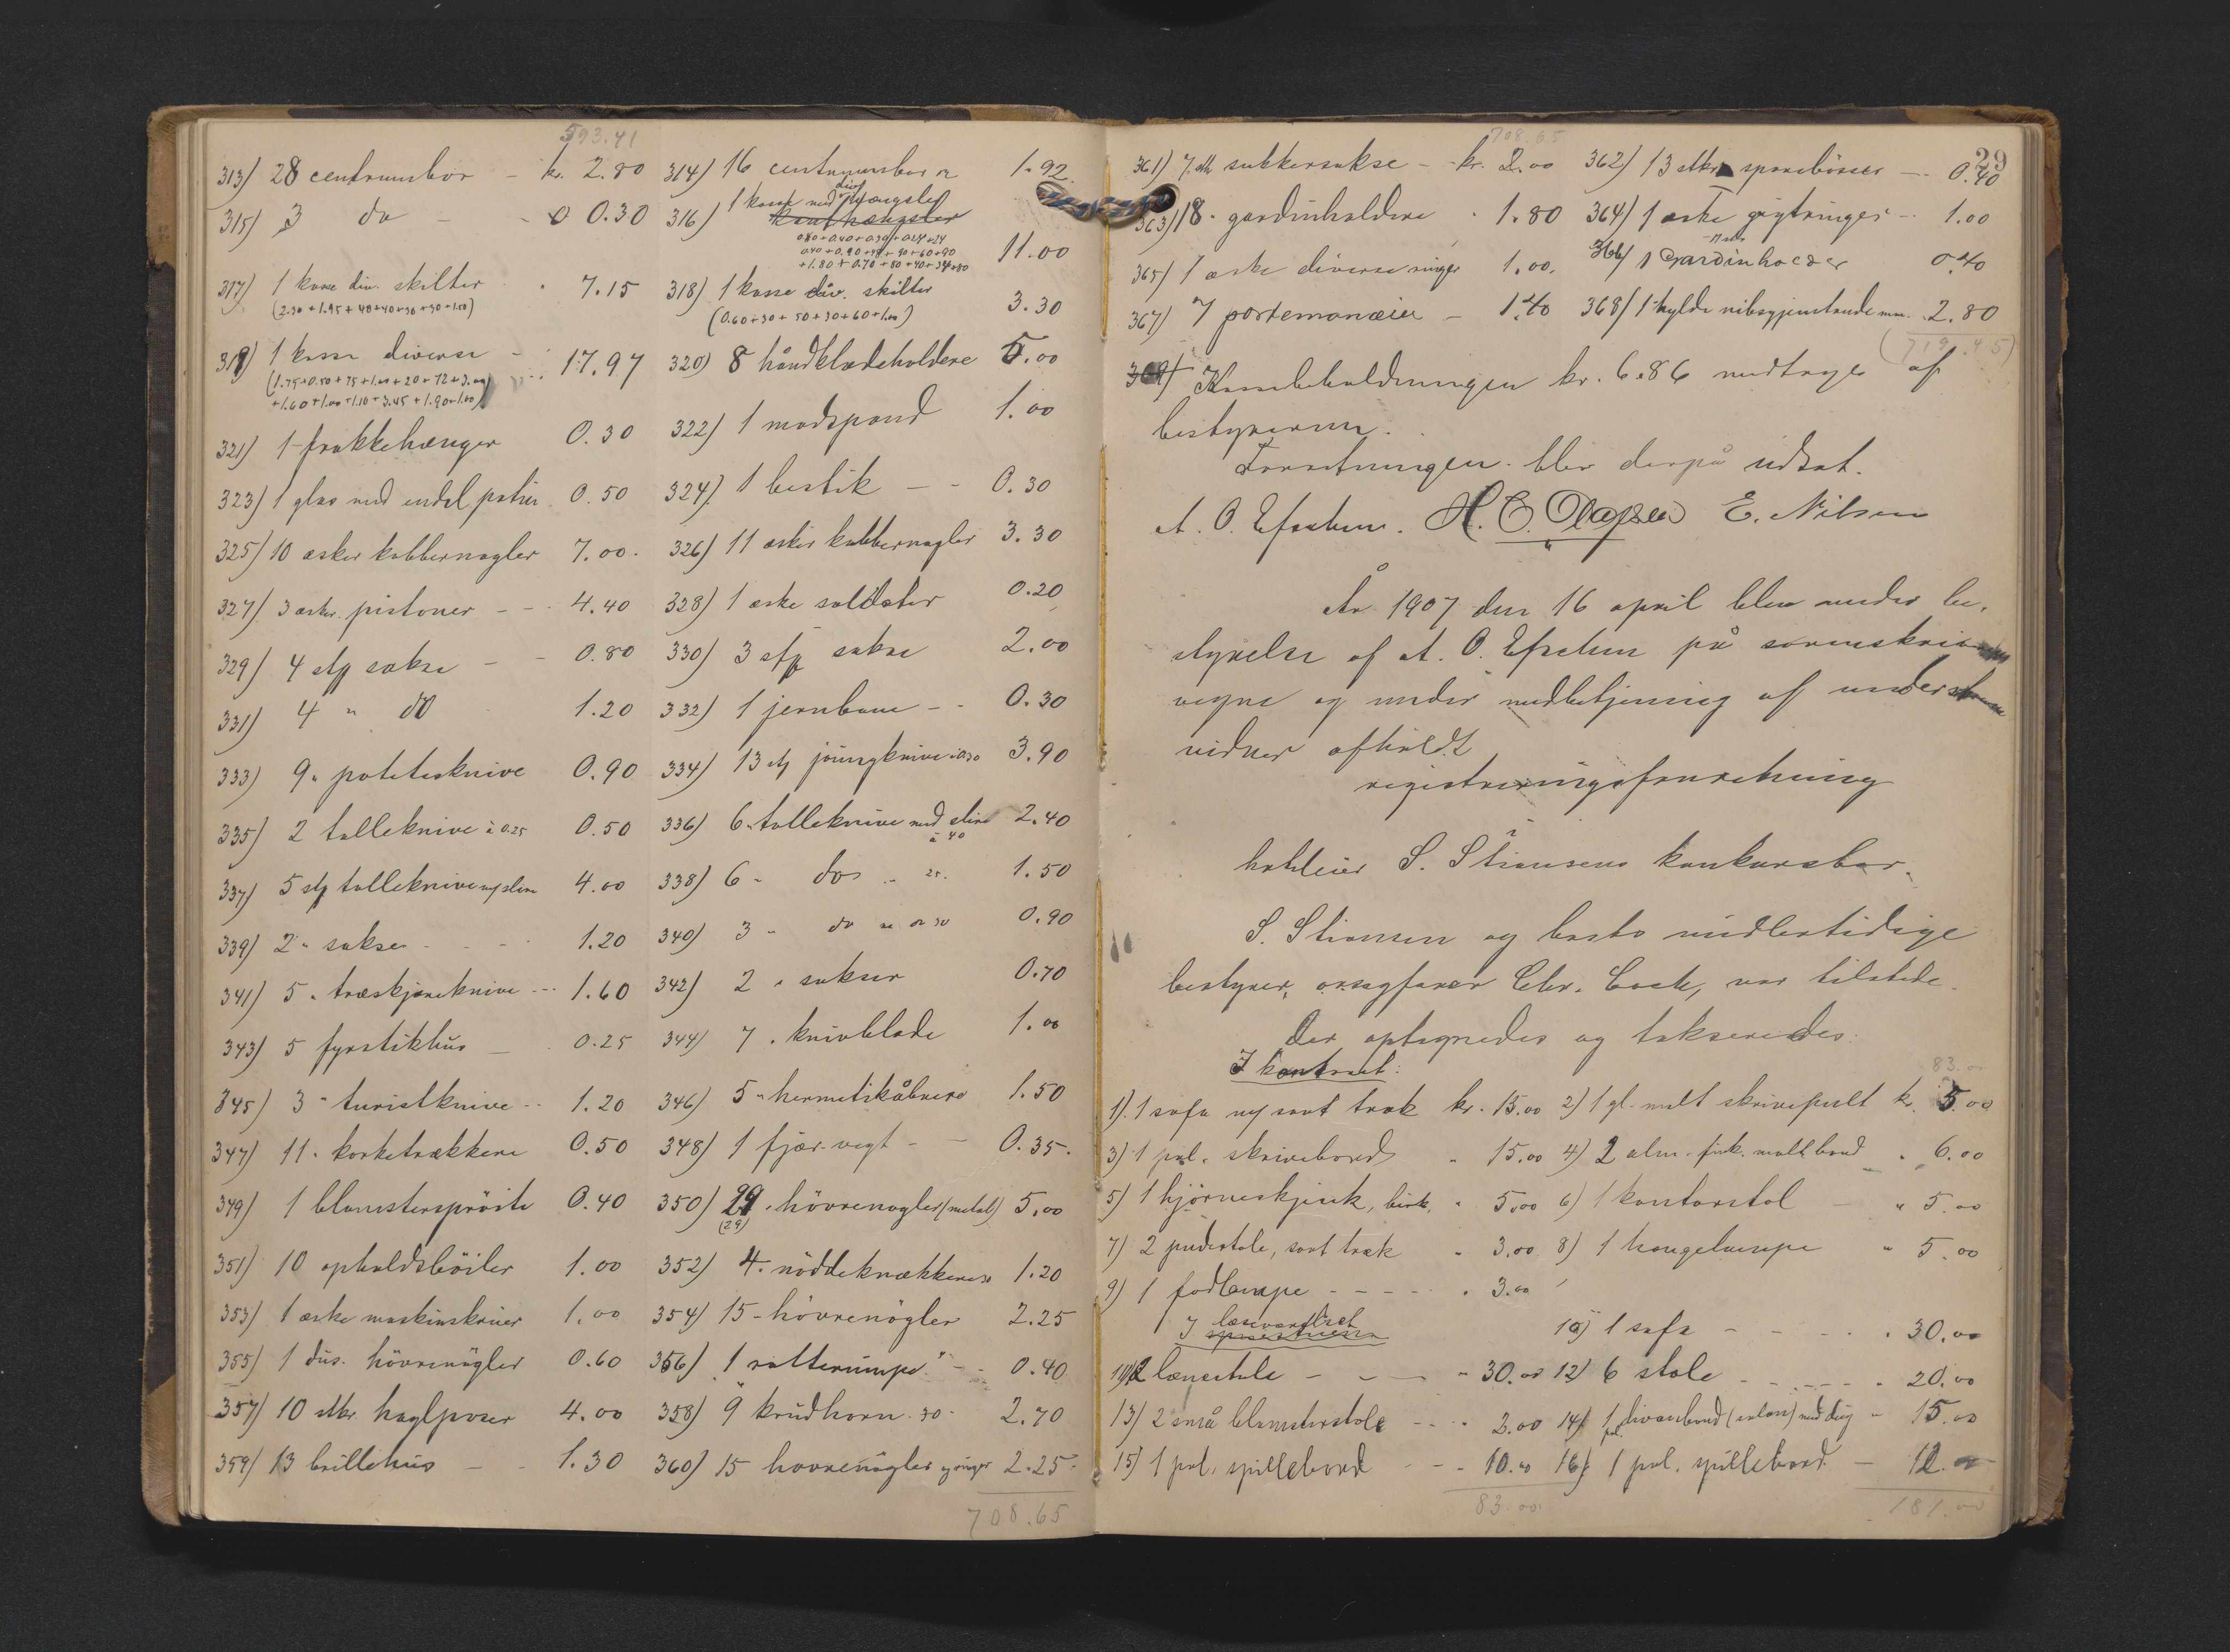 593.41
313) 28 centrumsbor - kr. 2.80 314) 16 centrumsbor 1.92
315) 3 do - 0.30 316) 1 kasse med div hængsler
0.80+0.40+0.30+0.24+24
0.40+0.90+48+90+60+90
+1.80+0.70+80+40+34+80 11.00
317) 1 kasse div. skilter 7.15 318) 1 kasse div. skilter 3.30
(2.30+1.95+40+40+30+50+1.00) (0.60+30+50+30+60+1.00)
319) 1 kasse diverse 17.97 320) 8 håndklædeholdere 5.00
(1.75+0.50+75+1.00+20+72+3.00
+1.60+1.00+1.10+3.45+1.90+1.00)
321) 1 frakkehænger 0.30 322) 1 madspand 1.00
323) 1 glas med endel 0.50 324) 1 bestik - - 0.30
325) 10 æsker kobbernagler 7.00. 326) 11 æsker kobbernagler 3.30
327) 3 æsker pistoner - - 4.40 328) 1 æske soldater 0.20
329) 4 stk sakse - - 0.80 330) 3 stk sakse 2.00
331) 4 " do 1.20 332) 1 jernbane - - 0.30
333) 9 " potetesknive 0.90 334) 13 stk knive 3.90
335) 2 tolleknive à 0.25 0.50 336) 6 tolleknive med slire 2.40
à 40
337) 5 stk tolleknive m/slire 4.00 338) 6 " do " 25. 1.50
339) 2 " sakse 1.20 340) 3 " do 0.90
341) 5 " træskjæreknive -- 1.60 342) 2 " sakser 0.70
343) 5 fyrstikhus - 0.25 344) 7 " knivblade 1.00
345) 3 " turistknive -- 1.20 346) 5 " hermetikåbnere 1.50
347) 11 " korketrækkere 0.50 348) 1 fjær-vegt - - 0.35.
349) 1 blomstersprøite 0.40 350) 29 " hövrenøgler (metal) 5.00
(29)
351) 10 opholdsböiler 1.00 352) 4 " nöddeknækkere 1.20
353) 1 æske maskinskruer 1.00 354) 15 - hövrenögler 2.25
355) 1 dus. hövrenögler 0.60 356) 1 rotterumpe - - 0.40
357) 10 stkr. haglposer 4.00 358) 9 krudhorn 30 - 2.70
359) 13 brillehus - - 1.30 360) 15 hovrenögler ringer 2.25
708.65
708.65
29
361) 7 stk sukkersakse - kr. 2.00 362) 13 stkr sparebösser -- 0.40
363) 18 " gardinholdere " 1.80 364) 1 æske gigtringer -- 1.00
365) 1 æske diverse ringer 1.00. 366) 1 Gardinholder 0.40
367) 7 portemonæier - 1.40 368) 1 hylde nibsgjenstande mm. 2.80
(719.45)
369) Kassebeholdningen kr. 6.86 medtages af
bestyreren.
Forretningen blev derpå udsat.
A. O. H. C. Olafsen E. Nilsen
År 1907 den 16 april blev under be-
styrelse af A. O. på sorenskriverens
vegne og under medbetjening af understående
vidner afholdt
registreringsforretning
i
hotleier S. Stiansens konkursbo.
S. Stiansen og boets midlertidige
bestyrer, orsagfører Chr. Cock, var tilstede.
Der optegnedes og takseredes:
I kontoret:
83.00
1) 1 sofa m/ sort træk kr. 15.00 2) 1 gl. malt skrivepult kr. 5.00
3) 1 pol. skrivebord " 15.00 4) 2 alm. firk. malt bord " 6.00
5) 1 hjørneskjænk, birk. " 5.00 6) 1 kontorstol - " 5.00
7) 2 pudestole, sort træk " 3.00 8) 1 hængelampe " 5.00
9) 1 fodlampe - - - - " 3.00
I læseværelset 10) 1 sofa - - - " 30.00
11) 2 lænestole - - - " 30.00 12) 6 stole - - - " 20.00
13) 2 små blomsterstole - - " 2.00 14) 1 pol. divanbord (salon) med dug " 15.00
15) 1 pol. spillebord - - 10.00 16) 1 pol. spillebord - 12.00
83.00 181.00